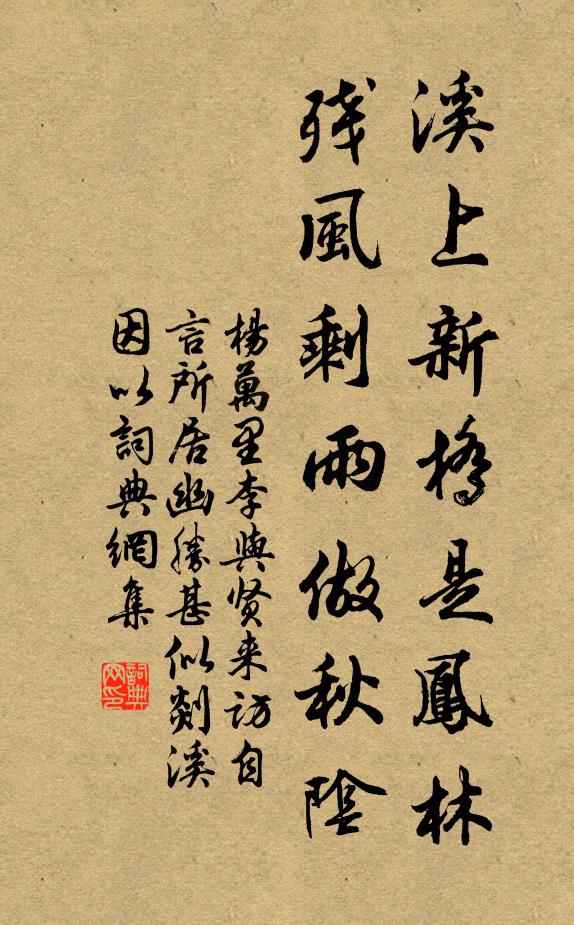 溪上新橋是鳳林
残風剩雨做秋陰
楊萬里李與贤来访自
言所居幽勝甚似剡溪
因以詞典網集
詞典網印